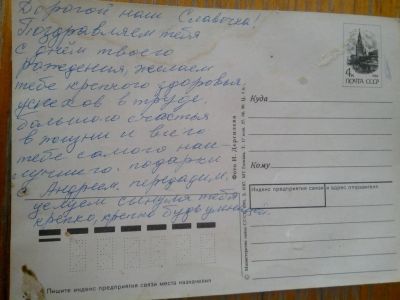 Дорогой наш Славочка!
Поздравляем тебя
с днём твоего
рождения, желаем
тебе крепкого здоровья,
успехов в труде,
большого счастья
в жизни и всего
тебе самого наи-
лучшего. подарки
с Андреем, передадим,
целуем сынуля тебя
крепко, крепко будь умницей.
4к
ПОЧТА СССР
Куда
Кому
Индекс предприятия связи и адрес отправителя
Фото И. Дергилева
Министерство связи СССР
Пишите индекс предприятия связи места назначения